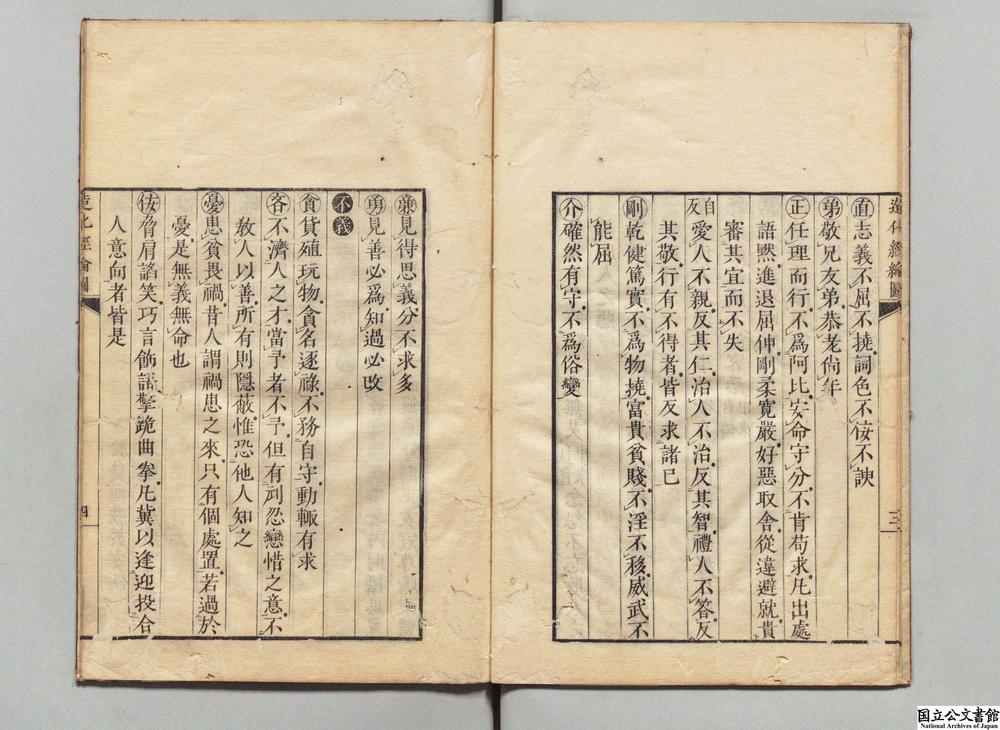 造化經綸圖
三
直志義不屈不撓詞色不佞不諛
弟敬兄友弟恭老尙年
正任理而行不爲阿比安命守分不肯苟求凡出處
語黙進退屈伸剛柔寬嚴好惡取舍從違避就貴
審其宜而不失
自反愛人不親反其仁治人不治反其智禮人不答反
其敬行有不得者皆反求諸己
剛乾健篤實不爲物撓富貴貧賤不淫不移威武不
能屈
介確然有守不爲俗變
廉見得思義分不求多
勇見善必爲知過必改
不義
貪貨殖玩物貪名逐祿不務自守動輙有求
吝不濟人之才當予者不予但有刓忍戀惜之意不
敎人以善所有則隱蔽惟恐他人知之
憂患貧畏禍昔人謂禍患之來只有個處置若過於
憂是無義無命也
佞脅肩諂笑巧言飾語擎跪曲拳凡冀以逢迎投合
人意向者皆是
造化經綸圖
四
国立公文書館
National Archives of Japan